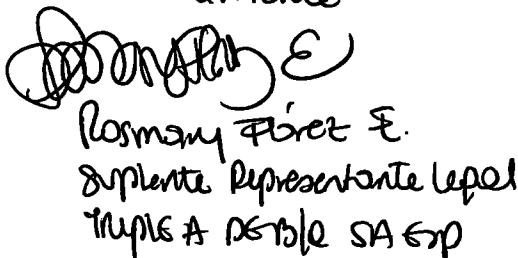 Rosmary Flórez E.
Suplente Representante legal
Triple A DE B/Q SA ESP